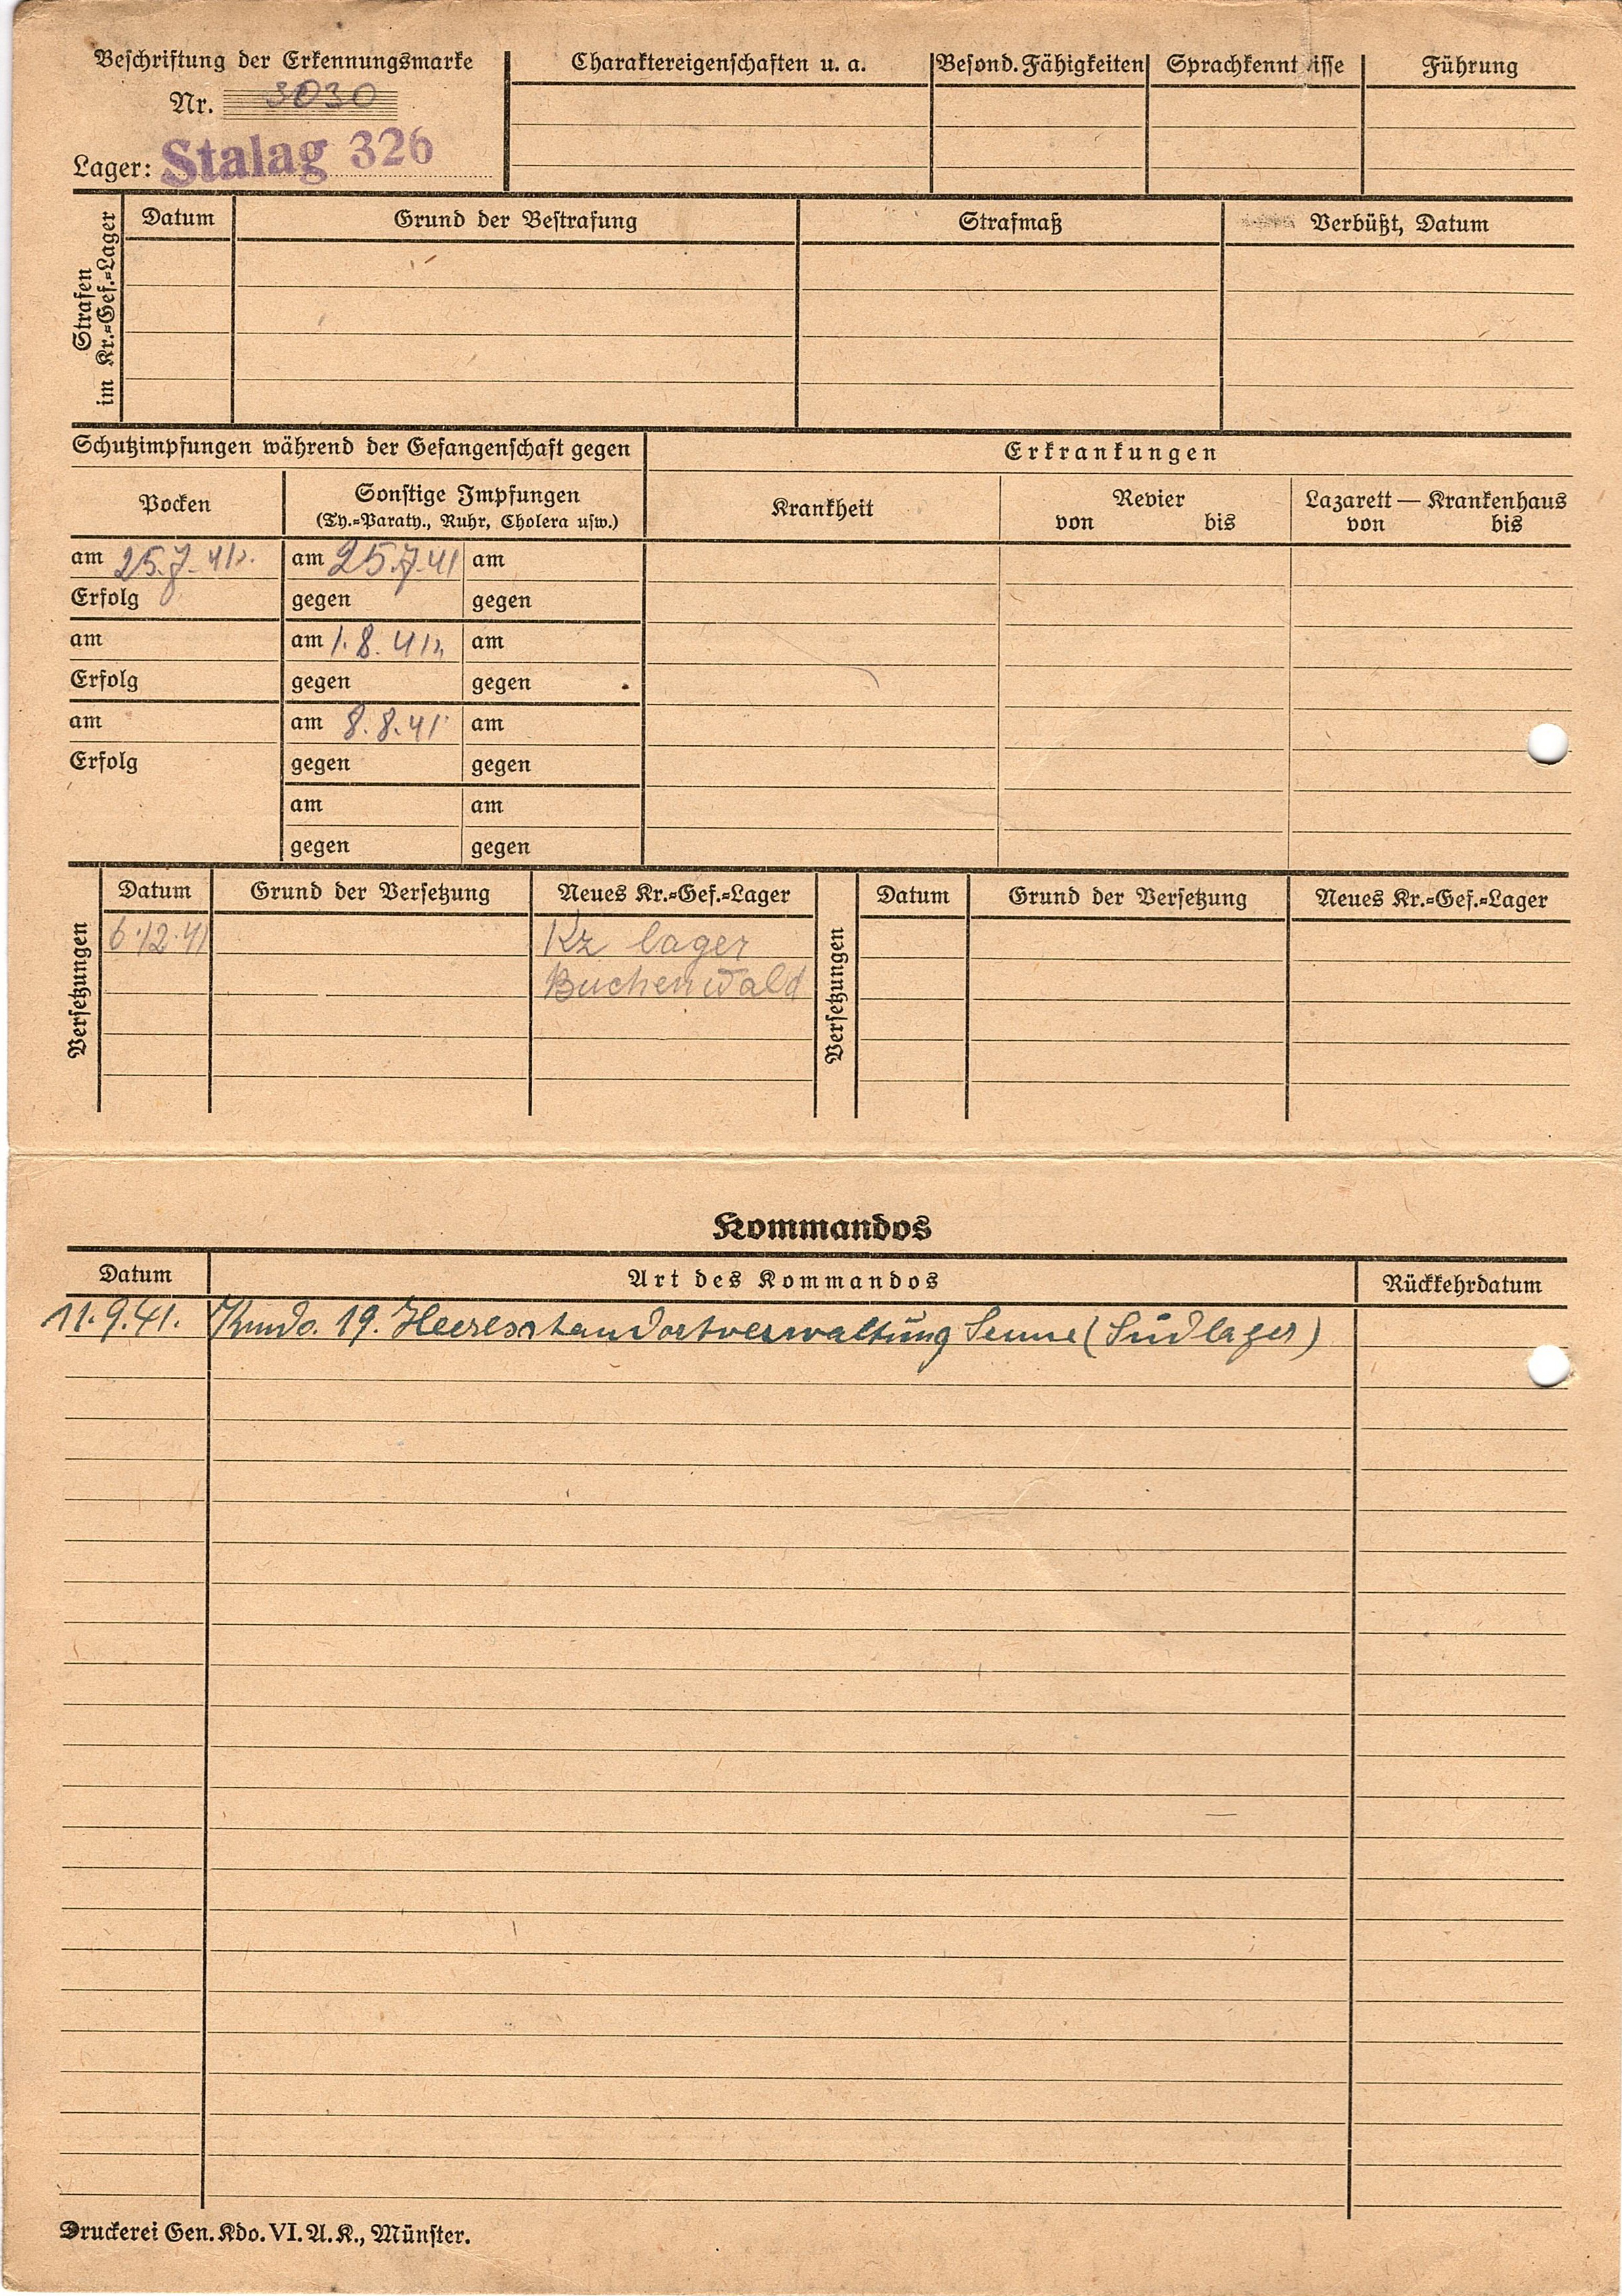 Beschriftung der Erkennungsmarke
Nr. 3030
Lager: Stalag 326
Charaktereigenschaften u. a.
Besond. Fähigkeiten
Sprachkennt isse
Führung
Strafen
im Kr.=Gef.=Lager
Datum
Grund der Bestrafung
Strafmaß
Verbüßt, Datum
Schutzimpfungen während der Gefangenschaft gegen
Erkrankungen
Pocken
Sonstige Impfungen
(Ty.=Paraty., Ruhr, Cholera usw.)
Krankheit
Revier
von bis
Lazarett — Krankenhaus
von bis
am 25.7.41 am 25.7.41 am
Erfolg gegen gegen
am am 1.8.41 am
Erfolg gegen gegen
am am 8.8.41 am
Erfolg gegen gegen
am am
gegen gegen
Versetzungen
Datum Grund der Versetzung Neues Kr.=Gef.=Lager
6.12.41 Kz lager
Buchenwald
Versetzungen
Datum Grund der Versetzung Neues Kr.=Gef.=Lager
Kommandos
Datum Art des Kommandos Rückkehrdatum
11.9.41. Kmdo. 19. Heeresstandortverwaltung Senne (Südlager)
Druckerei Gen. Kdo. VI. A. K., Münster.